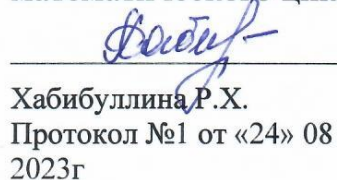 Хабибуллина Р.Х.
Протокол №1 от «24» 08
2023г